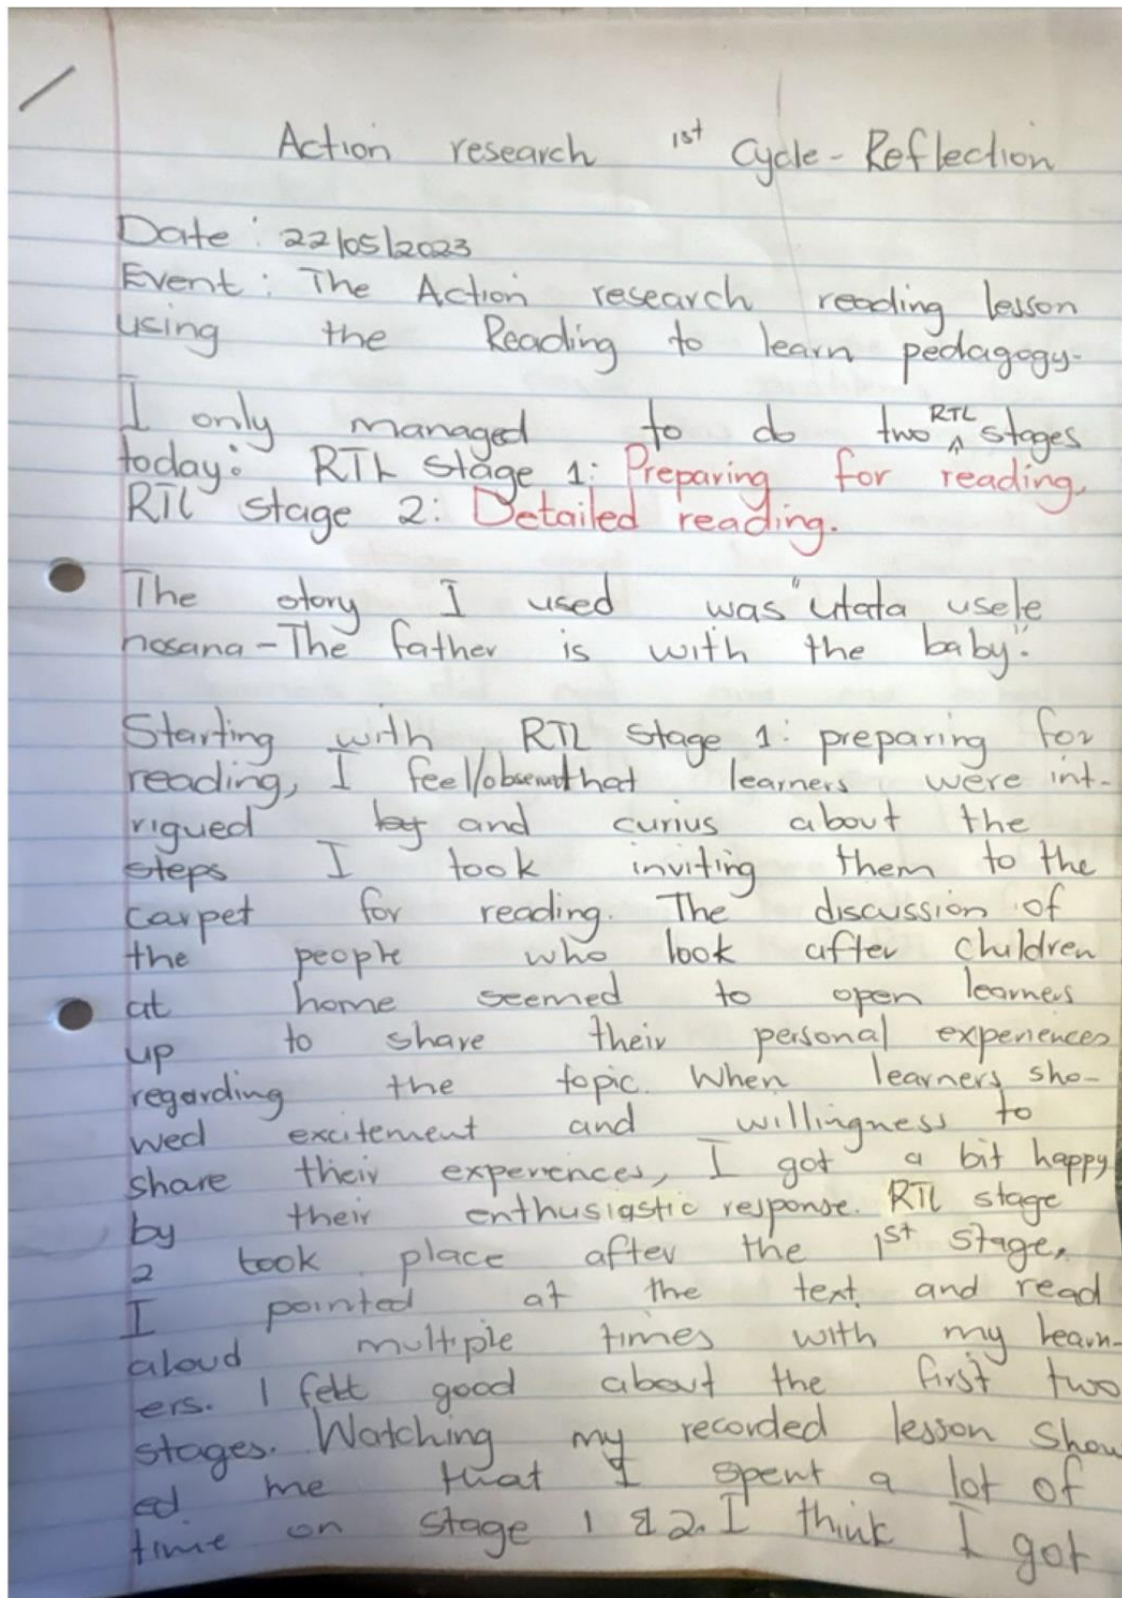 Action research 1st Cycle - Reflection
Date : 22/05/2023
Event : The Action research reading lesson
using the Reading to learn pedagogy.
I only managed to do two RTL stages
today: RTL stage 1: Preparing for reading,
RTL stage 2: Detailed reading.
The story I used was "utata usele
nosana - The father is with the baby".
Starting with RTL stage 1: preparing for
reading, I feel/observed that learners were int-
rigued by and curius about the
steps I took inviting them to the
carpet for reading. The discussion of
the people who look after children
at home seemed to open learners
up to share their personal experiences
regarding the topic. When learners sho-
wed excitement and willingness to
share their experences, I got a bit happy
by their enthusiastic response. RTL stage
2 took place after the 1st stage,
I pointed at the text and read
aloud multiple times with my learn-
ers. I felt good about the first two
stages. Watching my recorded lesson show
ed me that I spent a lot of
time on stage 1 & 2. I think I got